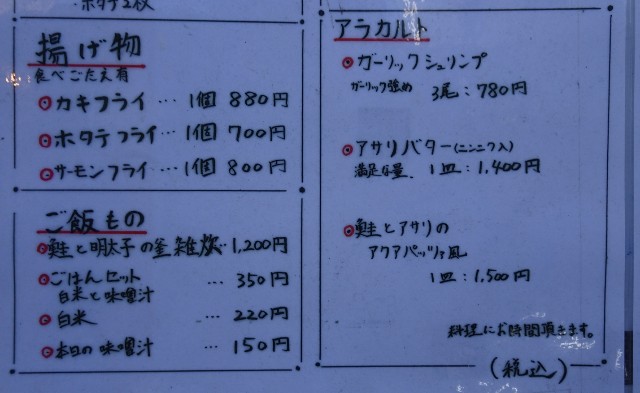 ホタテ2枚
揚げ物
食べごたえ有
カキフライ … 1個 880円
ホタテフライ … 1個 700円
サーモンフライ … 1個 800円
ご飯もの
鮭と明太子の釜雑炊 … 1,200円
ごはんセット … 350円
白米と味噌汁
白米 … 220円
本日の味噌汁 … 150円
アラカルト
ガーリックシュリンプ
ガーリック強め 3尾:780円
アサリバター(ニンニク入)
満足な量 1皿:1,400円
鮭とアサリの
アクアパッツァ風
1皿:1,500円
料理にお時間頂きます。
(税込)